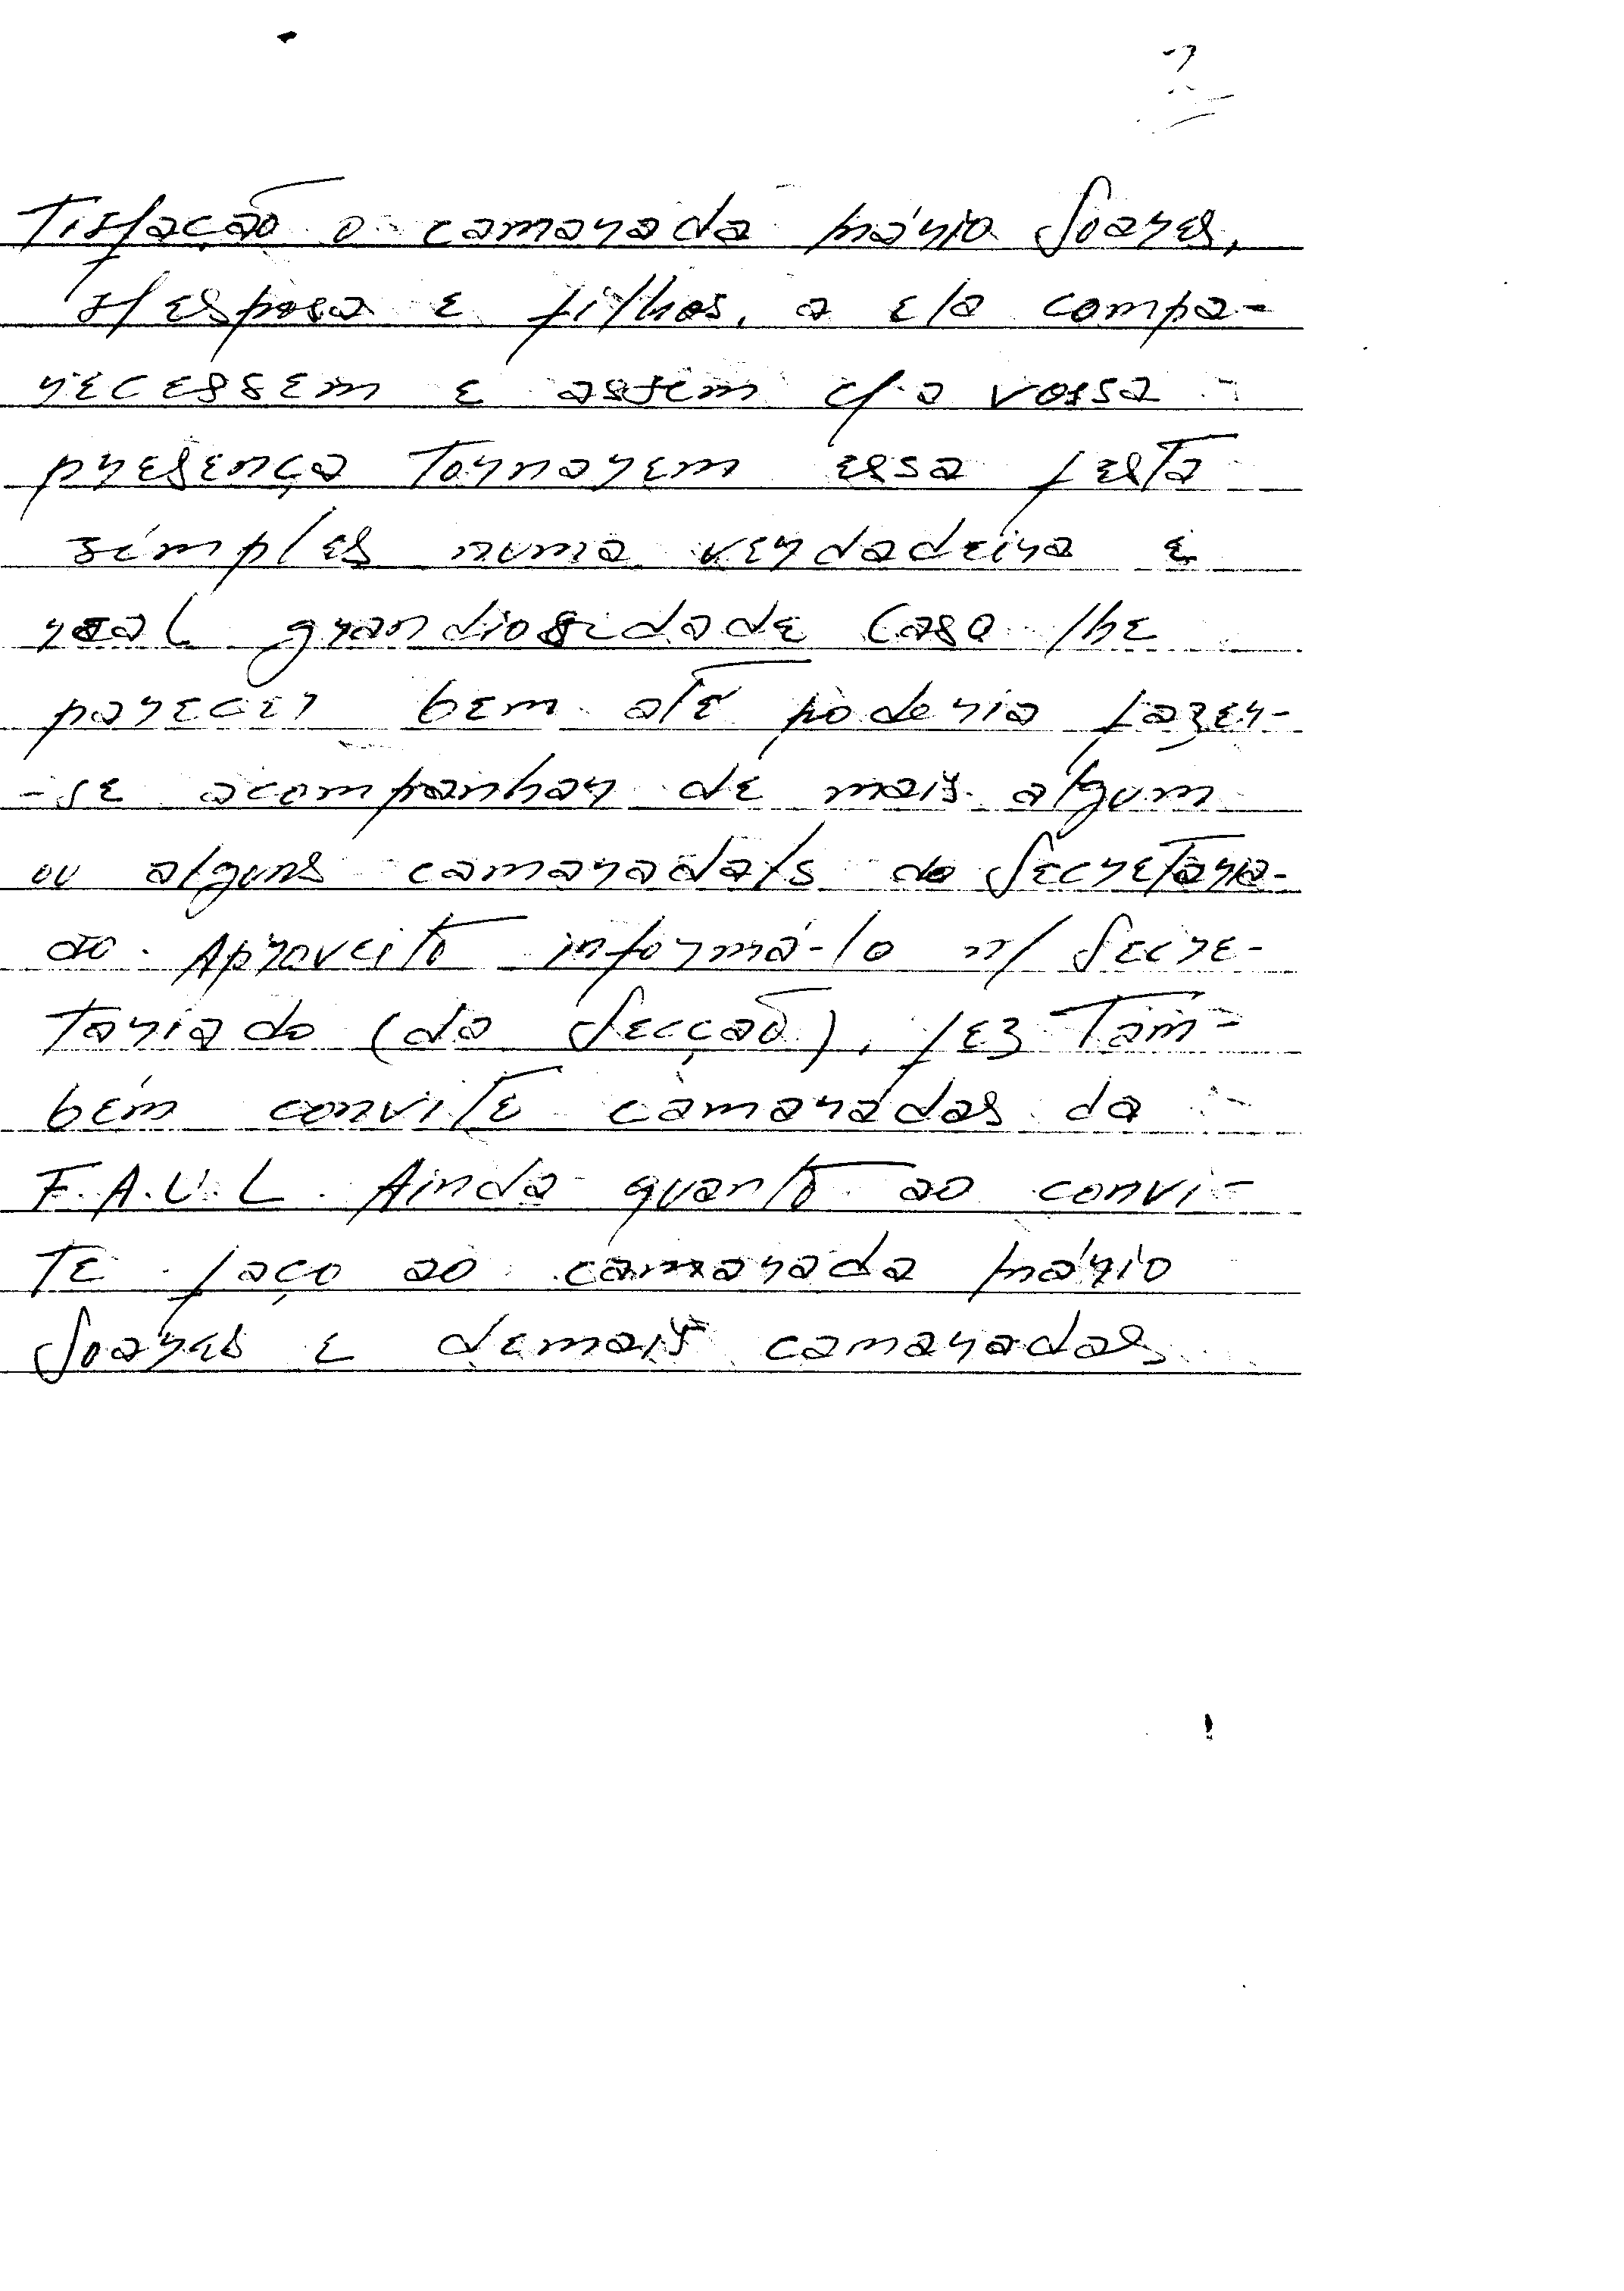 tisfação o camarada Mário Soares,
s/ esposa e filhos, a ela compa-
recessem e assim c/ a vossa
presença tornarem essa festa
simples numa verdadeira e
real grandiosidade Caso lhe
parecer bem até poderia fazer-
-se acompanhar de mais algum
ou alguns camarada/s do Secretaria-
do. Aproveito informá-lo n/ Secre-
tariado (da Secção), fez tam-
bém convite camaradas da
F.A.U.L. Ainda quanto ao convi-
te faço ao camarada Mário
Soares e demais camaradas